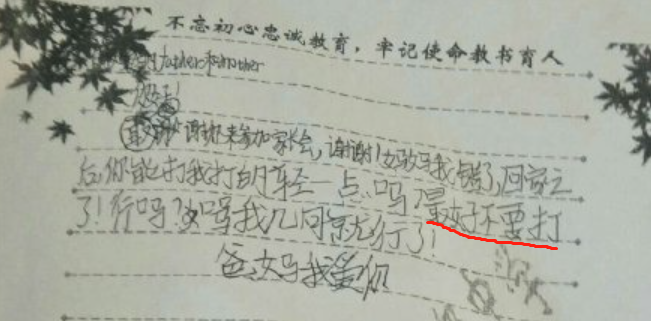 不忘初心忠诚教育,牢记使命教书育人
father和mother
谢谢你来参加家长会,谢谢!妈妈我错了,回家之
后你能打我打的轻一点吗?最好不要打
了!行吗?妈骂我几句就行了!
爸妈我爱你